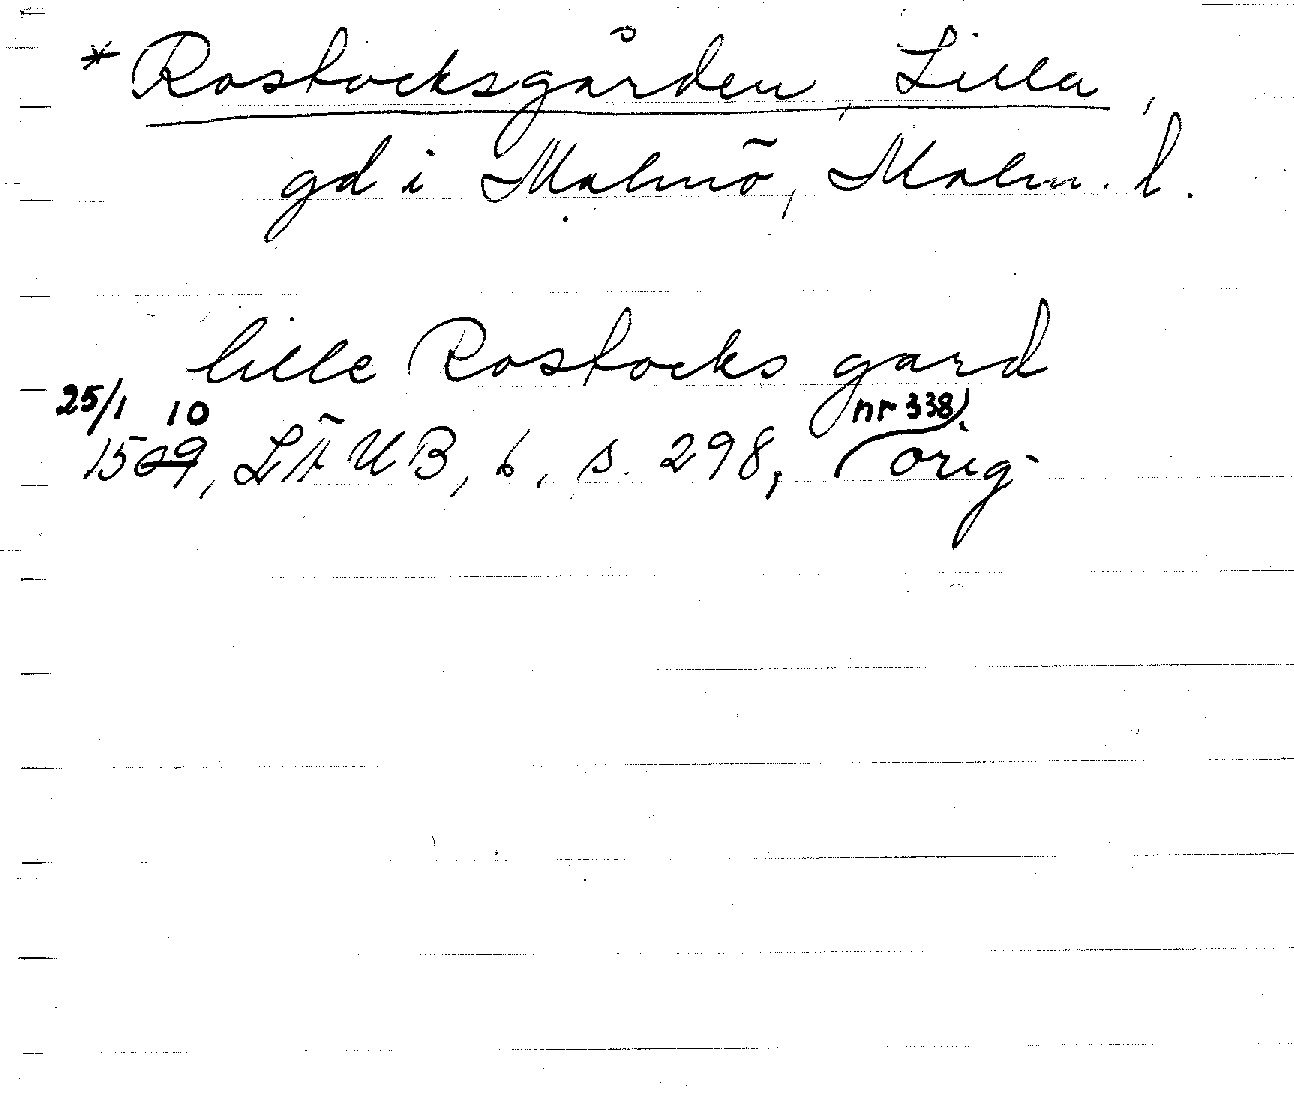 * Rostocksgården, Lilla,
gd i Malmö, Malm. l.
lille Rostocks gard
25/1 10
1509, LÄUB, 6, s. 298, orig
nr 338